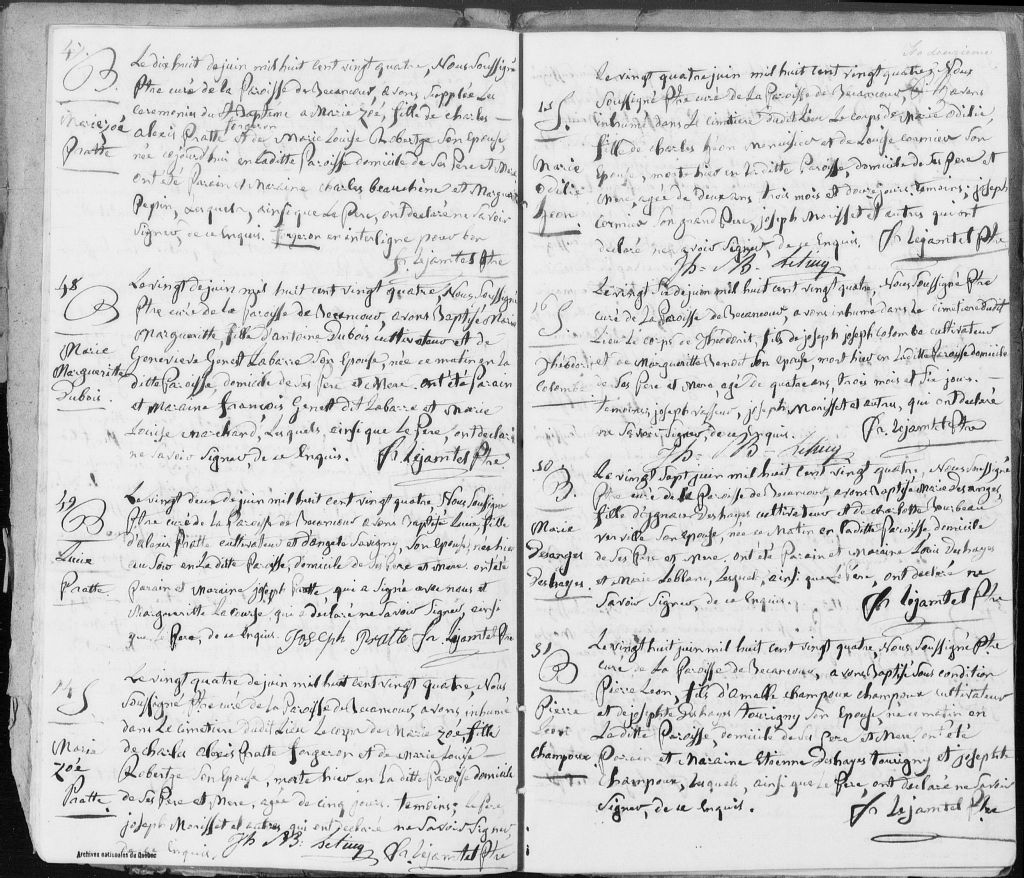 47.
B
Marie zoé
Pratte
Le dix huit de juin mil huit cent vingt quatre, Nous Soussigné
Ptre curé de la Paroisse de Becancour, avons Supplée Les
ceremonies du St Baptême a Marie zoé, fille de charles
alexis Pratte forgeron et de Marie Louise Robertge Son Epouse,
née cejourd'hui en Laditte Paroisse domicile de Ses Pere et Mere
ont été Parain et Maraine charles Beauchêne et Marguerite
Pepin, Lesquels, ainsi que Le Pere, ont declaré ne Savoir
Signer, de ce Enquis. forgeron en interligne pour bon
Fr. Lejamtel Ptre
48
B
Marie
Margueritte
Dubois
Le vingt de juin mil huit cent vingt quatre, Nous Soussigné
Ptre curé de la Paroisse de Becancour, avons Baptisé Marie
Margueritte, fille d'antoine Dubois cultivateur et de
Genevieve Genest Labarre Son Epouse, née ce matin en La
ditte Paroisse, domicile de Ses Pere et Mere. ont été Parain
et Maraine françois Genest dit Labarre et Marie
Louise Marchand, Lesquels, ainsi que Le Pere, ont declaré
ne Savoir Signer, de ce Enquis. Fr. Lejamtel Ptre
49
B
Lucie
Pratte
Le vingt deux de juin mil huit cent vingt quatre, Nous Soussigné
Ptre curé de La Paroisse de Becancour avons Baptisé Lucie fille
d'alexis Pratte cultivateur et d'angele Savigny, Son Epouse, née hier
au Soir en La ditte Paroisse, domicile de Ses Pere et Mere. ont été
Parain et Maraine joseph Pratte qui a Signé avec nous et
Margueritte La course, qui a declaré ne Savoir Signer, ainsi
que Le Pere, de ce Enquis. Joseph Pratte Fr. Lejamtel Ptre
14 S
Marie
zoé
Pratte
Le vingt quatre de juin mil huit cent vingt quatre, Nous
Soussigné Ptre curé de La Paroisse de Becancour, avons inhumé
dans Le Cimetiere dudit Lieu Le corps de Marie zoé fille
de charles alexis Pratte forgeron et de Marie Louise
Robertge Son Epouse, morte hier en La ditte Paroisse domicile
de Ses Pere et Mere, agée de cinq jours. temoins: Le Pere,
joseph Morisset et autres qui ont declaré ne Savoir Signer
de ce Enquis. Fr. Lejamtel Ptre
Archives nationales du Québec
15 S.
Marie
Odilie
Leon
Le vingt quatre juin mil huit cent vingt quatre, Nous
Soussigné Ptre curé de La Paroisse de Becancour, avons
inhumé dans Le Cimetiere dudit Lieu Le corps de Marie Odilie,
fille de charles Leon Menuisier et de Louise cormier Son
Epouse, morte hier en Laditte Paroisse, domicile de Ses Pere et
Mere, agée de deux ans, trois mois et douze jours. temoins; joseph
cormier Son grand Pere, joseph Morisset et autres qui ont
declaré ne Savoir Signer, de ce Enquis. Fr. Lejamtel Ptre
16 S.
Colombe
Le vingt Six de juin mil huit cent vingt quatre, Nous Soussigné Ptre
curé de La Paroisse de Becancour avons inhumé dans Le cimetiere dudit
Lieu Le corps de fils de joseph joseph Colombe cultivateur
et de Margueritte Benoit Son Epouse, mort hier en Laditte Paroisse domicile
de Ses Pere et Mere, agé de quatre ans, trois mois et Six jours.
temoins, joseph Vasseur, joseph Morisset et autres, qui ont declaré
ne Savoir Signer, de ce Enquis. Fr. Lejamtel Ptre
50
B.
Marie
Desanges
Deshayes
Le vingt Sept juin mil huit cent vingt quatre, Nous Soussigné
Ptre curé de la Paroisse de Becancour, avons Baptisé Marie Desanges,
fille d'ignace Deshayes cultivateur et de charlotte Bourbeau
Verville Son Epouse, née ce Matin en Laditte Paroisse, domicile
de Ses Pere et Mere. ont été Parain et Maraine Louis Deshayes
et Marie Leblanc, Lesquels, ainsi que Le Pere, ont declaré ne
Savoir Signer, de ce Enquis. Fr. Lejamtel Ptre
51
B
Pierre
Leon
Champoux
Le vingt huit juin mil huit cent vingt quatre, Nous Soussigné Ptre
curé de La Paroisse de Becancour, avons Baptisé Sous condition
Pierre Leon, fils d'amable champoux champoux cultivateur
et de josephte Deshayes tourigny Son Epouse, né ce matin en
La ditte Paroisse, domicile de Ses Pere et Mere. ont été
Parain et Maraine Etienne Deshayes tourigny et josephte
Champoux, Lesquels, ainsi que Le Pere, ont declaré ne Savoir
Signer, de ce Enquis. Fr. Lejamtel Ptre